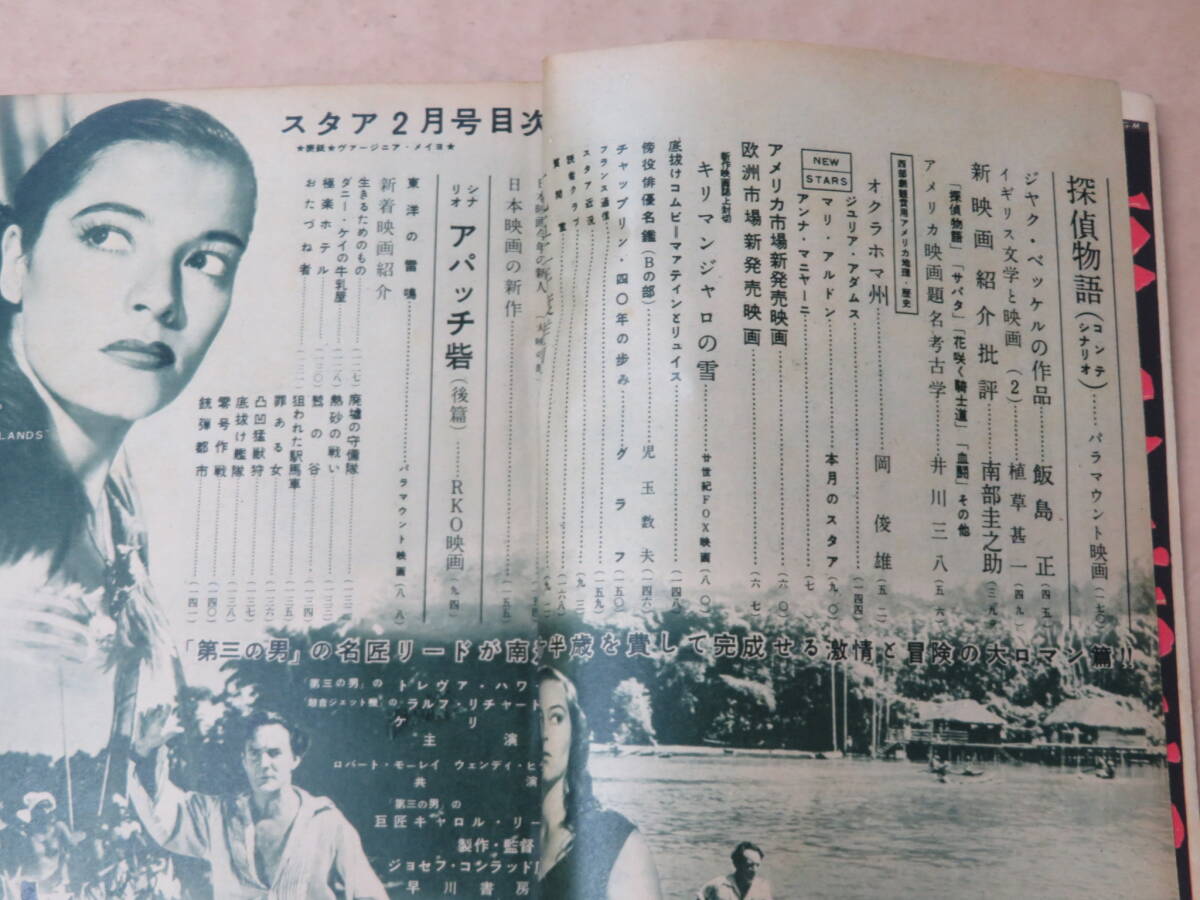 スタア2月号目次
★表紙★ヴァージニア・メイヨ★
探偵物語(コンテシナリオ)……パラマウント映画(一七〇)
ジャク・ベッケルの作品……飯島正(四五)
イギリス文学と映画(2)……植草甚一(四九)
新映画紹介批評……南部圭之助(三九)
「探偵物語」「サパタ」「花咲く騎士道」「血闘」その他
アメリカ映画題名考古学……井川三八(五六)
西部劇観賞用アメリカ地理・歴史
オクラホマ州……岡俊雄(五二)
NEW STARS
ジュリア・アダムス……(一四四)
マリ・アルドン……本月のスタア(九〇)
アンナ・マニヤーニ……(七
アメリカ市場新発売映画……(六〇)
欧洲市場新発売映画……(六七)
新作映画誌上封切
キリマンジャロの雪……廿世紀FOX映画(八〇)
底抜けコムビーマアティンとリュイス……(一四八)
傍役俳優名鑑(Bの部)……児玉数夫(一四六)
チャップリン・四〇年の歩み……グラフ(一五〇)
フランス通信……(一五九)
スタア近況……(九三)
読者クラブ……(一六八)
質問室
日本映画の新作……(一五五)
シナリオ アパッチ砦(後篇)……RKO映画(九四)
東洋の雷鳴……パラマウント映画(八八)
新着映画紹介
生きるためのもの……(一二七)
ダニー・ケイの牛乳屋……(一二八)
極楽ホテル……(一三〇)
おたづね者……(一三一)
廃墟の守備隊……(一三二)
熱砂の戦い
鷲の谷……(一三四)
狙われた駅馬車……(一三五)
罪ある女……(一三六)
凸凹猛獣狩……(一三七)
底抜け艦隊……(一三八)
零号作戦……(一四〇)
銃弾都市……(一四一)
LANDS"
「第三の男」の名匠リードが南
半歳を費して完成せる激情と冒険の大ロマン篇!!
「第三の男」の トレヴァ・ハワ
「超音ジェット機」の ラルフ・リチャート
ケリ
主演
ロバート・モーレイ ウェンディ・ヒ
共演
「第三の男」の
巨匠キャロル・リー
製作・監督
ジョセフ・コンラッド
早川書房